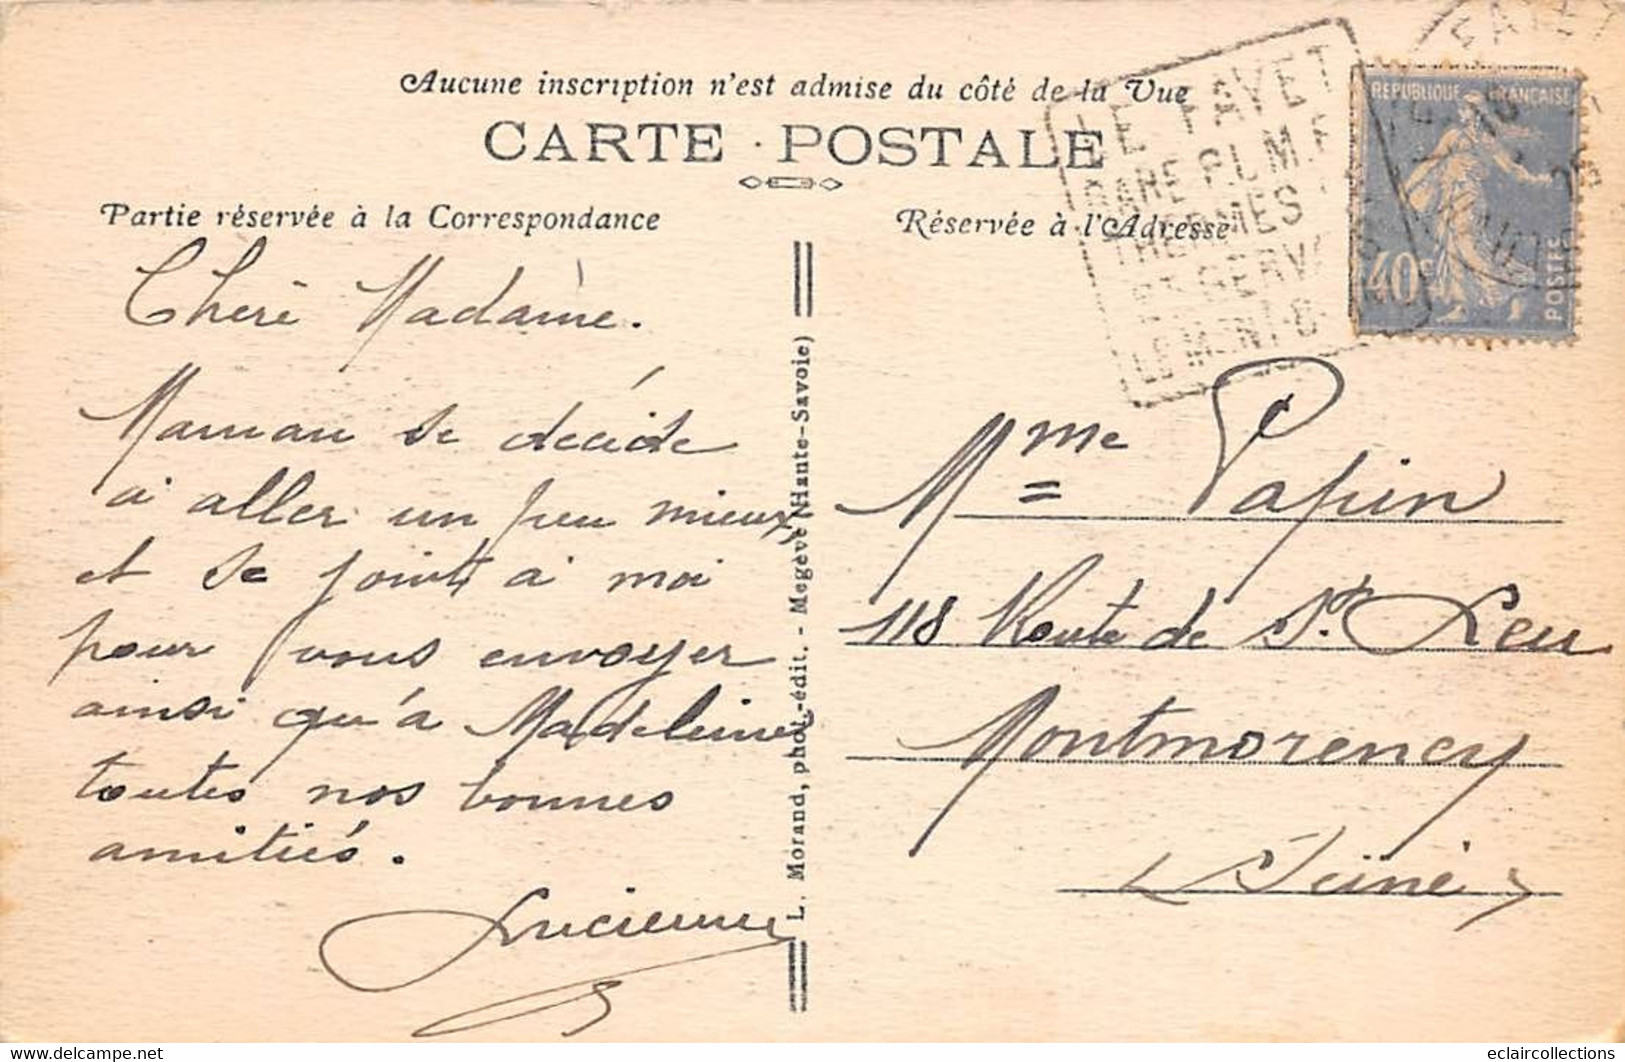 Aucune inscription n'est admise du côté de la Vue
CARTE POSTALE
Partie réservée à la Correspondance
Réservée à l'Adresse
LE FAYET
GARE P.L.M.
THERMES
GERVA
LE MONT-B
FAYET
REPUBLIQUE FRANÇAISE
40c
POSTES
Cheré Madame.
Maman se décide
à aller un peu mieux
et se joint à moi
pour vous envoyer
ainsi qu'à Madeleine
toutes nos bonnes
amitiés.
Lucienne
L. Morand, phot.-édit. - Megève (Haute-Savoie)
Mme Papin
118 Route de St. Leu
Montmorency
(Seine)
eclaircollections
delcampe.net